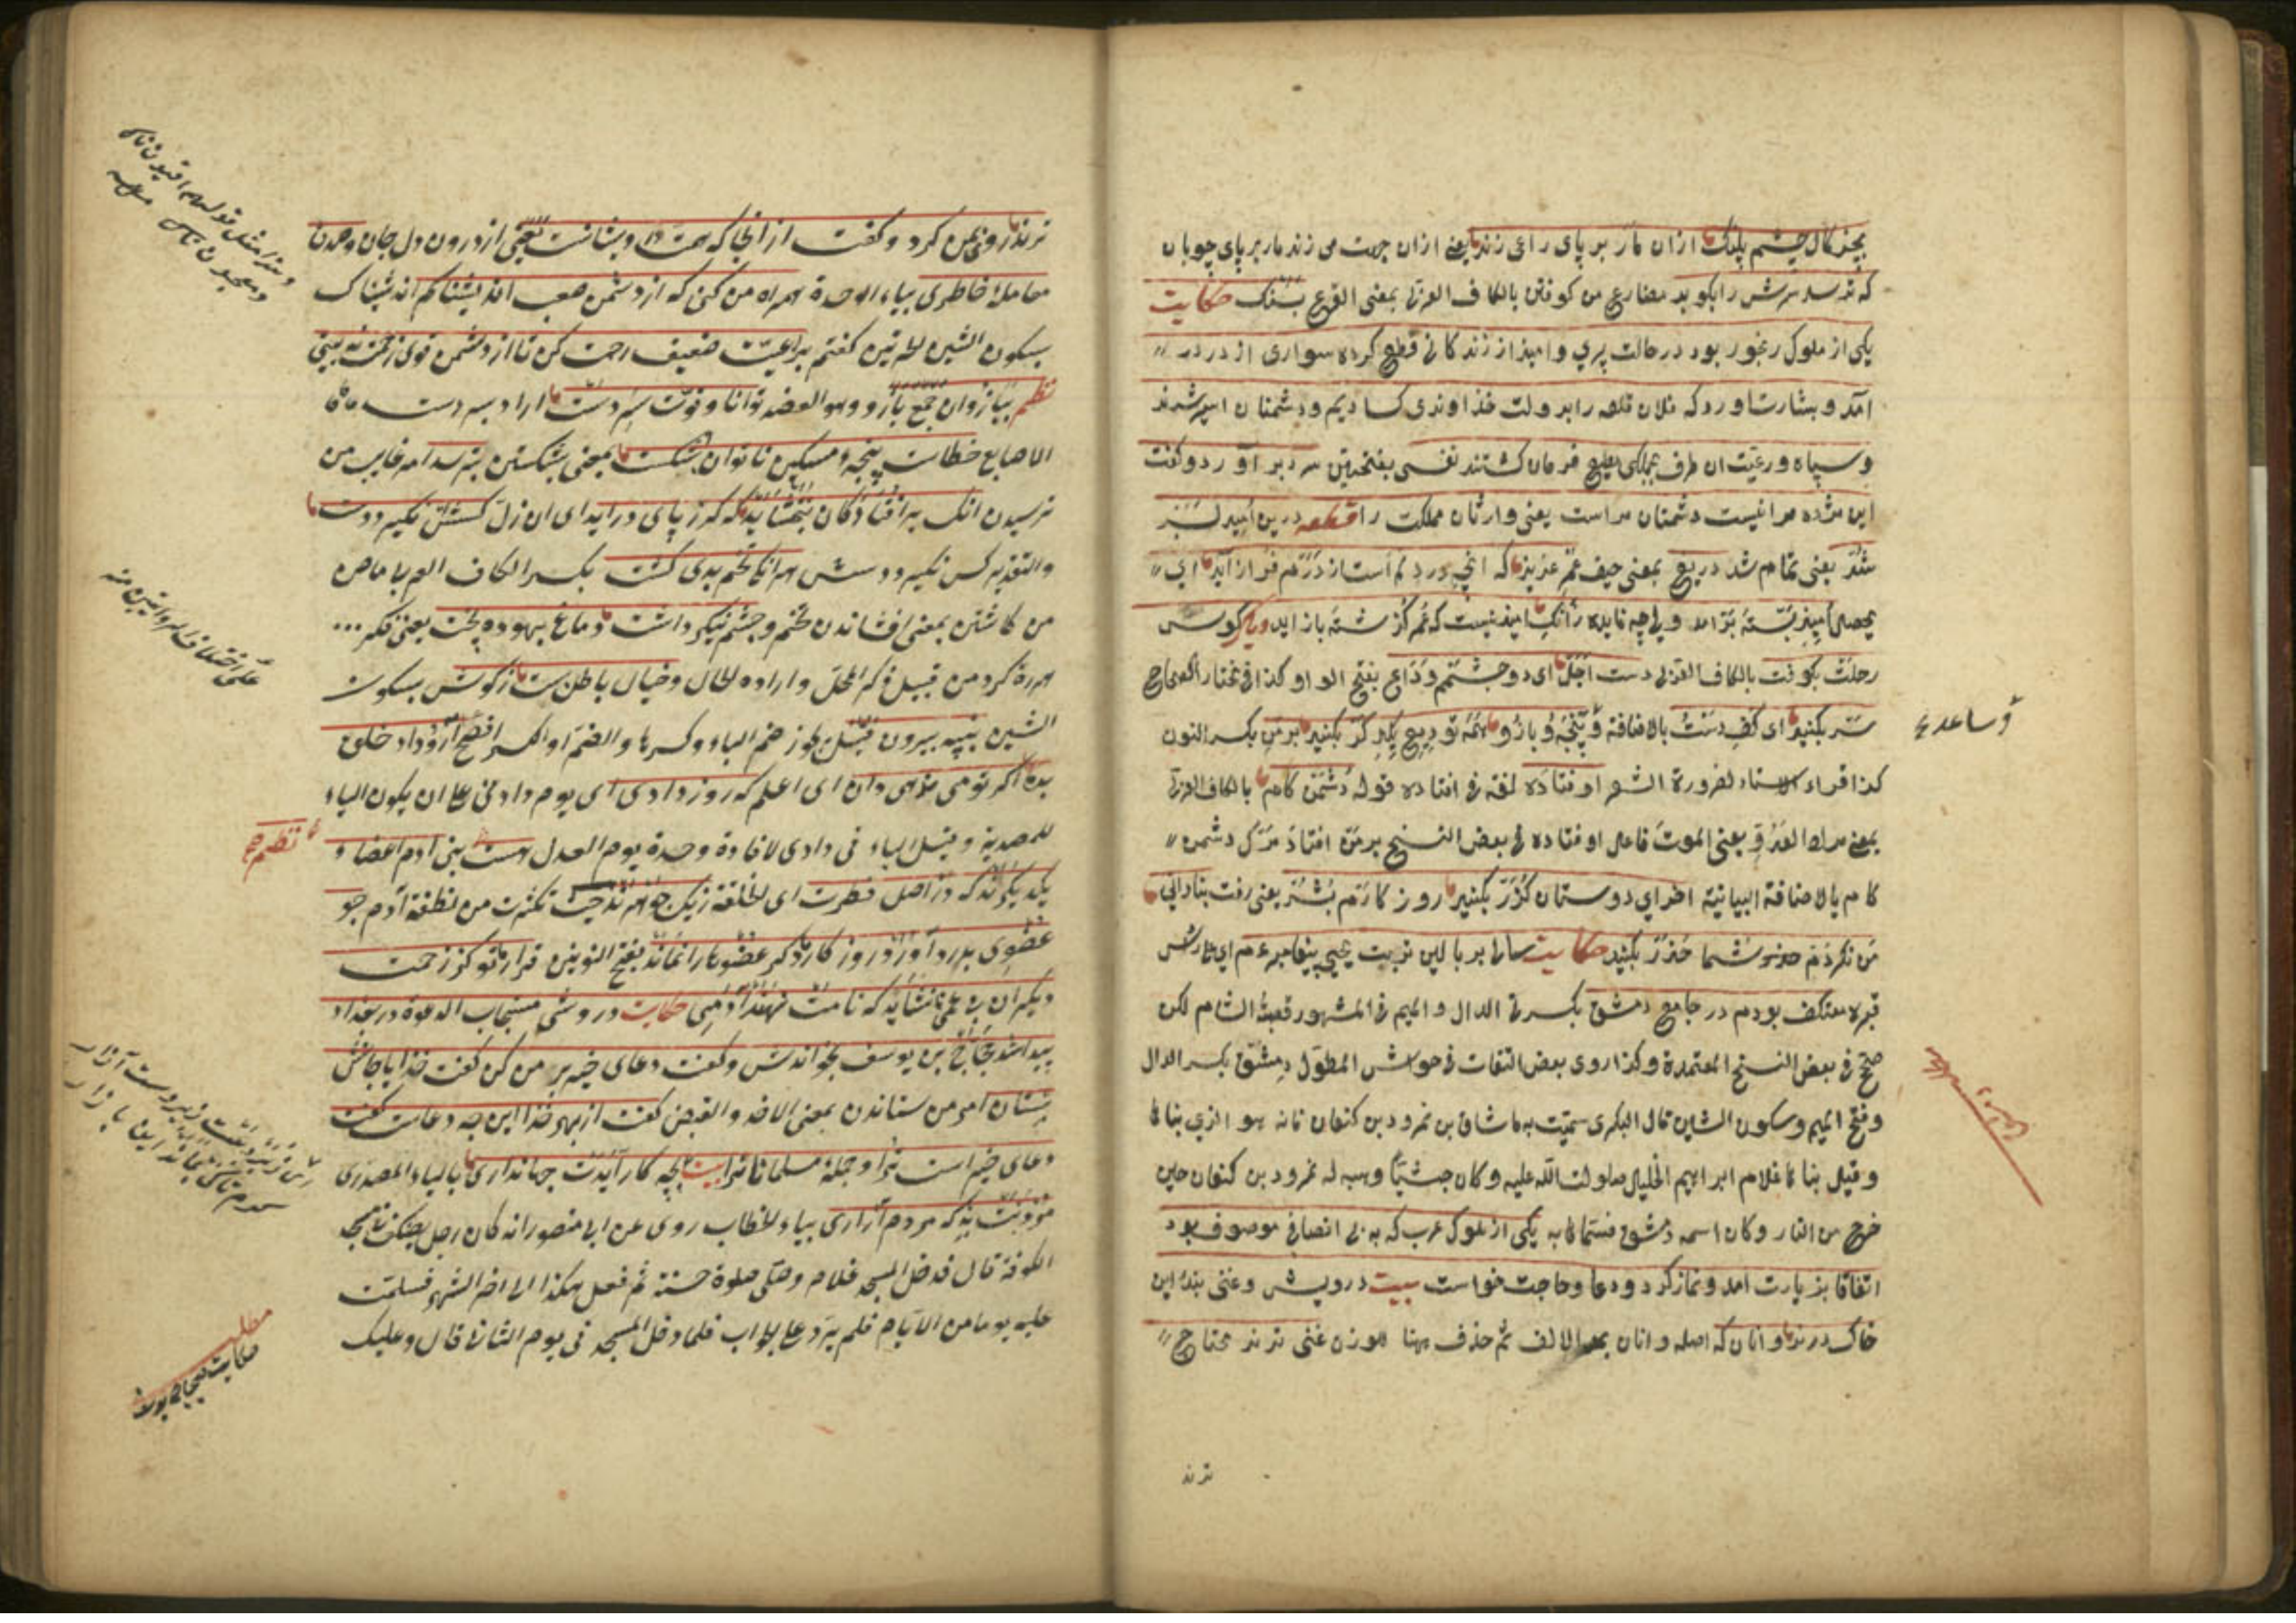 بچنگال چشم پلنگ ازان مار بر پای راعی زند یعنی ازان جهت می زند مار بر پای چوبان
که ترسد سرش را بکوبد مضارع من کوفتن بالکاف العربی بمعنی القرع بسنگ حکایت
یکی از ملوک رنجور بود در حالت پیری و امید از زندکانی قطع کرده سواری از در در
آمد و بشارت آورد که فلان قلعه را بدولت خداوندی کشادیم و دشمنان اسیر شدند
و سپاه و رعیت آن طرف بجملکی مطیع فرمان کشتند نفسی بفتحتین سرد بر آورد و گفت
این مژده مرا نیست دشمنان مراست یعنی وارثان مملکت را قطعه درین امید بسر
شد یعنی تمام شد دریغ بمعنی حیف عمر عزیز که آنچه در دلم است از درم فراز آید ای
یحصل امید بسته برآمد ولی چه فایده زانک امید نیست که عمر گذشته باز آید دیگر کوس
رحلت بکوفت بالکاف العربی دست اجل ای دو چشمم وداع بفتح الواو کذا فی مختار الصحاح
سر بکنید ای کف دست بالاضافة و پنجه و بازو همه تودیع یکدگر بکنید بر من بکسر النون
و ساعد
کذا قراء الاستاد لضرورة الشعر اوفتاده لغة فی افتاده قوله دشمن کام بالکاف العربی
بمعنی مراد العدو یعنی الموت فاعل اوفتاده فی بعض النسخ بر من افتاد مرگ دشمن
کام بالاضافة البیانیة آخر ای دوستان گذر بکنید روز کارم بشد یعنی رفت بنادانی
من نکردم شما حذر بکنید حکایت سالی بر بالین تربت یحیی پیغامبر عم ای
قبره معتکف بودم در جامع دمشق بکسرتی الدال و المیم فی المشهور قصبة الشام لکن
صحح فی بعض النسخ المعتمدة وکذا روی بعض الثقات فی حواشی المطول دمشق بکسر الدال
وفتح المیم وسکون الشین قال البکری سمیت به ماشاق بن نمرود بن کنعان فانه هو الذی بناها
وقیل بناها غلام ابراهیم الخلیل صلوات الله علیه وکان حبشیا وهبه له نمرود بن کنعان حین
خرج من النار وکان اسمه دمشق فسماها به یکی از ملوک عرب که به بی انصافی موصوف بود
اتفاقا بزیارت آمد و نماز کرد و دعا و حاجت خواست بیت درویش و غنی بندۀ این
خاک درند و انان که اصله و آنان بمد الالف ثم حذف ههنا لوزن غنی ترند محتاج
ترند
ترند روی بمن کرد و گفت از آنجا که همت درویشانست یعنی از درون دل جان و صدق
معاملۀ خاطری بیاء الوحدة همراه من کن که از دشمن صعب اندیشناکم اندیشناک
بسکون الشین گفتم بر رعیت ضعیف رحمت کن تا از دشمن قوی زحمت نه بینی
نظم ببازوان جمع بازو وهو العضد توانا و قوت سر دست اراد بسر دست
الاصابع خطاست پنجه مسکین ناتوان بشکست بمعنی شکستن بترسد امر غایب من
ترسیدن آنک بر افتادکان نبخشاید که گر ز پای در آید ای ان زل کسش نگیرد دست
والتقدیر کس نگیرد دستش هر آنک تخم بدی کشت بکسر الکاف العربی ماض
من کاشتن بمعنی افشاندن تخم و چشم نیکی داشت دماغ بیهده پخت یعنی فکر
هرزه کرد من قبیل ذکر المحل و اراده الحال و خیال باطل بست ز گوش بسکون
الشین پنبه بیرون قیل یجوز ضم الباء وکسرها والضم او الکسر افصح آر و داد خلق
بده اگر تو می ندهی داد ای اعلم که روز دادی ای یوم داد فی علی ان یکون الیاء
للمصدریة وقیل الیاء فی دادی لافادة وحدة یوم العدل هست بنی آدم اعضاء
نظم
یکدیگرند که در اصل فطرت ای الخلقة ز یک جوهرند حیث تکثرت من نطفة آدم چو
عضوی بدرد آورد روزکار دگر عضوها را نماند بفتح النونین قرار تو کز زحمت
دیگران بی غمی نشاید که نامت نهند آدمی حکایت درویشی مستجاب الدعوة در بغداد
پیدا شد حجاج بن یوسف بخواندش و گفت دعای خیر بر من کن گفت خدایا جانش
بستان امر من ستاندن بمعنی الاخذ والقبض گفت از بهر خدا این چه دعاست گفت
دعای خیر است ترا و جملۀ مسلمانانرا بیت بچه کار آیدت جهانداری بالیاء المصدری
مردنت به که مردم آزاری بیاء الخطاب روی عن ابی منصور انه کان رجل یعتکف مسجد
الکوفة قال فدخل المسجد غلام وصلی صلوة حسنة ثم فعل هکذا الی آخر الشهر فسلمت
علیه یوما من الایام فلم یرد علی الجواب فلما دخل المسجد فی یوم الثانی قال وعلیک